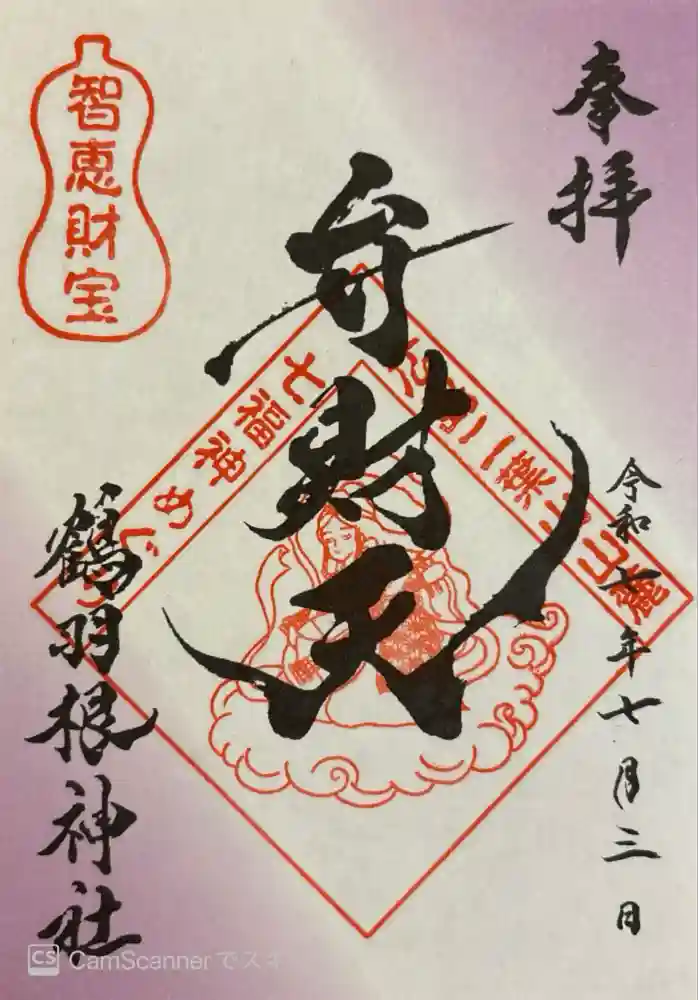 奉拝
令和七年七月三日
弁財天
智恵財宝
七福神めぐり
二葉の里
鶴羽根神社
CS CamScannerでスキ